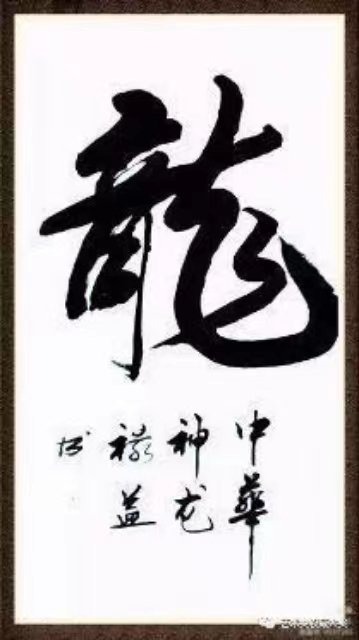 龍
中華
神龙
益
书